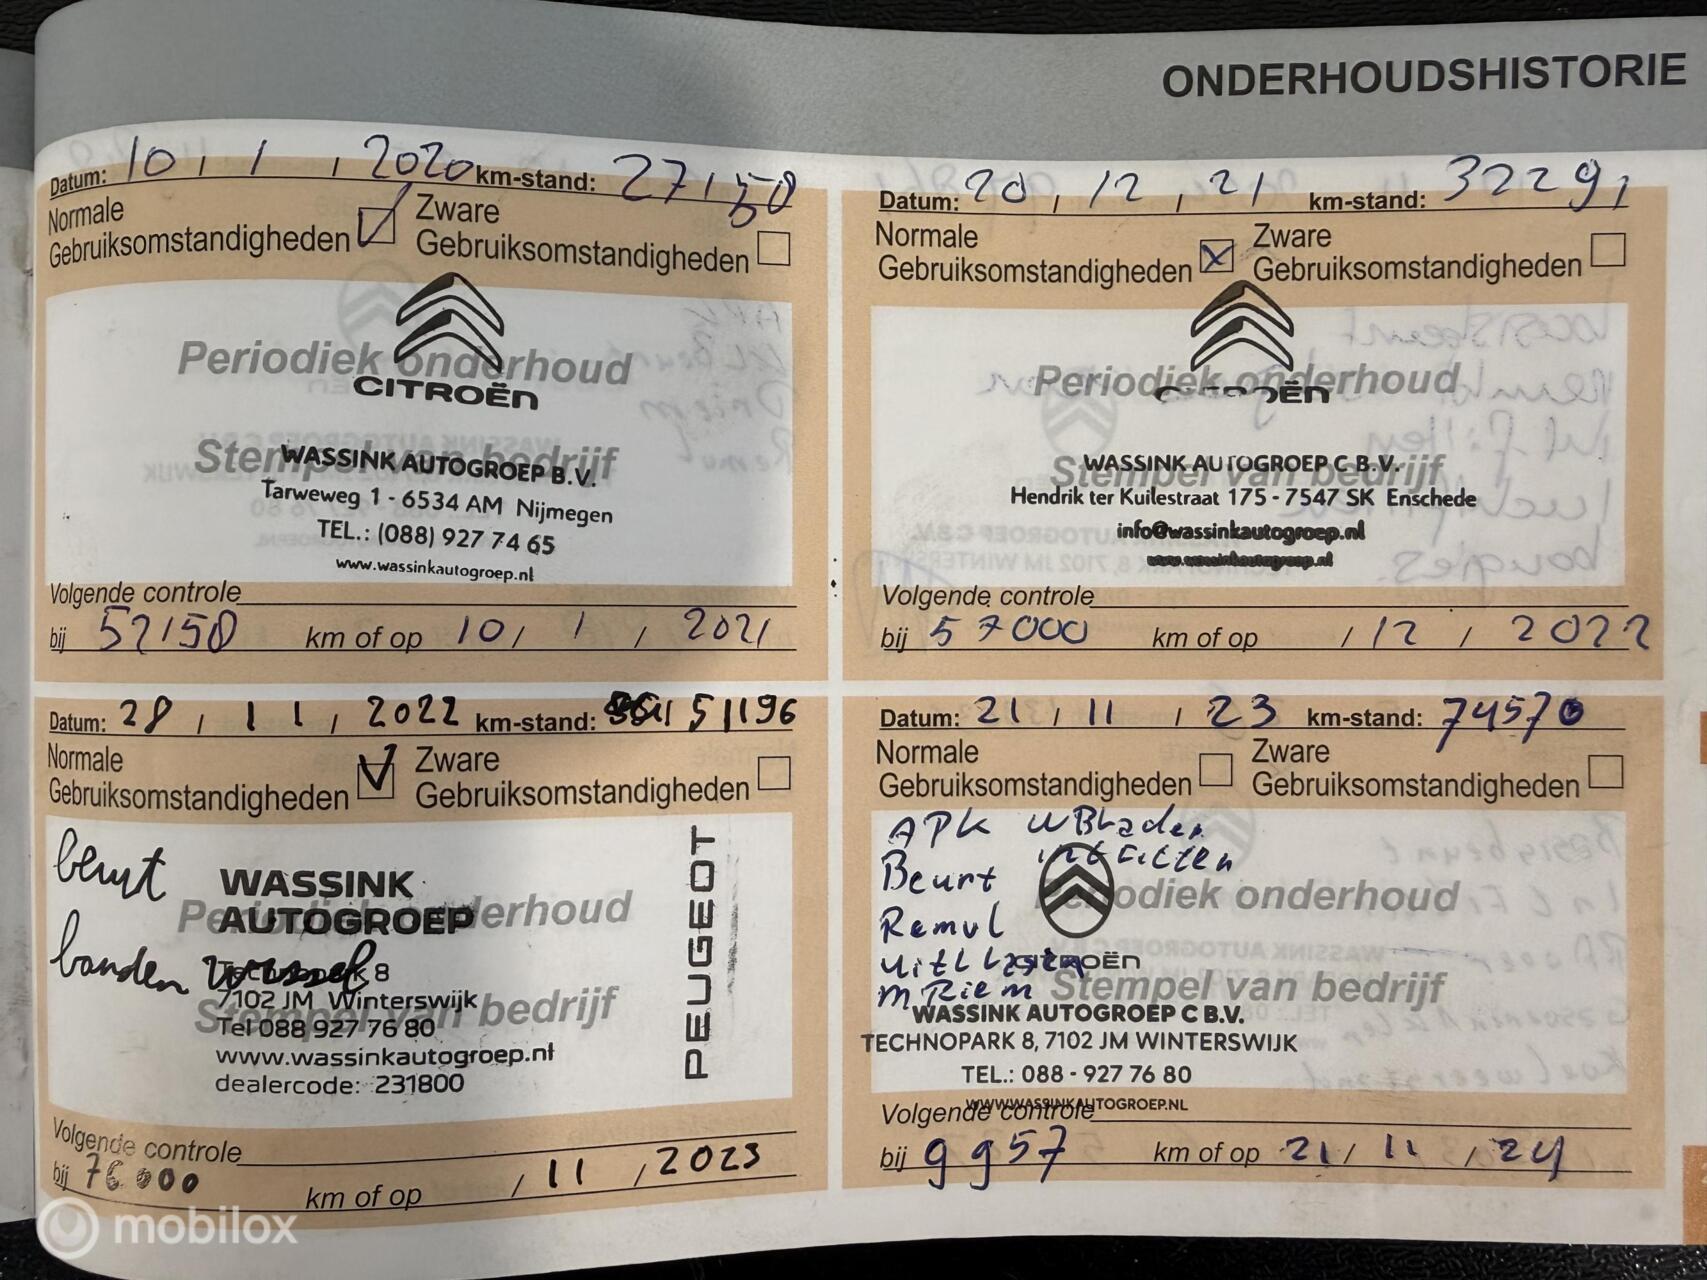 ONDERHOUDSHISTORIE
Datum: 10 / 1 / 2020 km-stand: 27150
Normale Gebruiksomstandigheden Zware Gebruiksomstandigheden
Periodiek onderhoud
CITROËN
Stempel van bedrijf
WASSINK AUTOGROEP B.V.
Tarweweg 1 - 6534 AM Nijmegen
TEL.: (088) 927 74 65
www.wassinkautogroep.nl
Volgende controle
bij 52150 km of op 10 / 1 / 2021
Datum: 20 / 12 / 21 km-stand: 32291
Normale Gebruiksomstandigheden Zware Gebruiksomstandigheden
Periodiek onderhoud
CITROËN
Stempel van bedrijf
WASSINK AUTOGROEP C B.V.
Hendrik ter Kuilestraat 175 - 7547 SK Enschede
info@wassinkautogroep.nl
www.wassinkautogroep.nl
Volgende controle
bij 57000 km of op / 12 / 2022
Datum: 28 / 11 / 2022 km-stand: 51196
Normale Gebruiksomstandigheden Zware Gebruiksomstandigheden
beurt
banden wissel
WASSINK
AUTOGROEP
Periodiek onderhoud
Technopark 8
7102 JM Winterswijk
Stempel van bedrijf
Tel 088 927 76 80
www.wassinkautogroep.nl
dealercode: 231800
PEUGEOT
Volgende controle
bij 76000 km of op / 11 / 2023
Datum: 21 / 11 / 23 km-stand: 74570
Normale Gebruiksomstandigheden Zware Gebruiksomstandigheden
APK WBladen
Beurt intFilter
Periodiek onderhoud
Remvl
CITROËN
Stempel van bedrijf
MRiem
WASSINK AUTOGROEP C B.V.
TECHNOPARK 8, 7102 JM WINTERSWIJK
TEL.: 088 - 927 76 80
WWW.WASSINKAUTOGROEP.NL
Volgende controle
bij 9957 km of op 21 / 11 / 24
mobilox